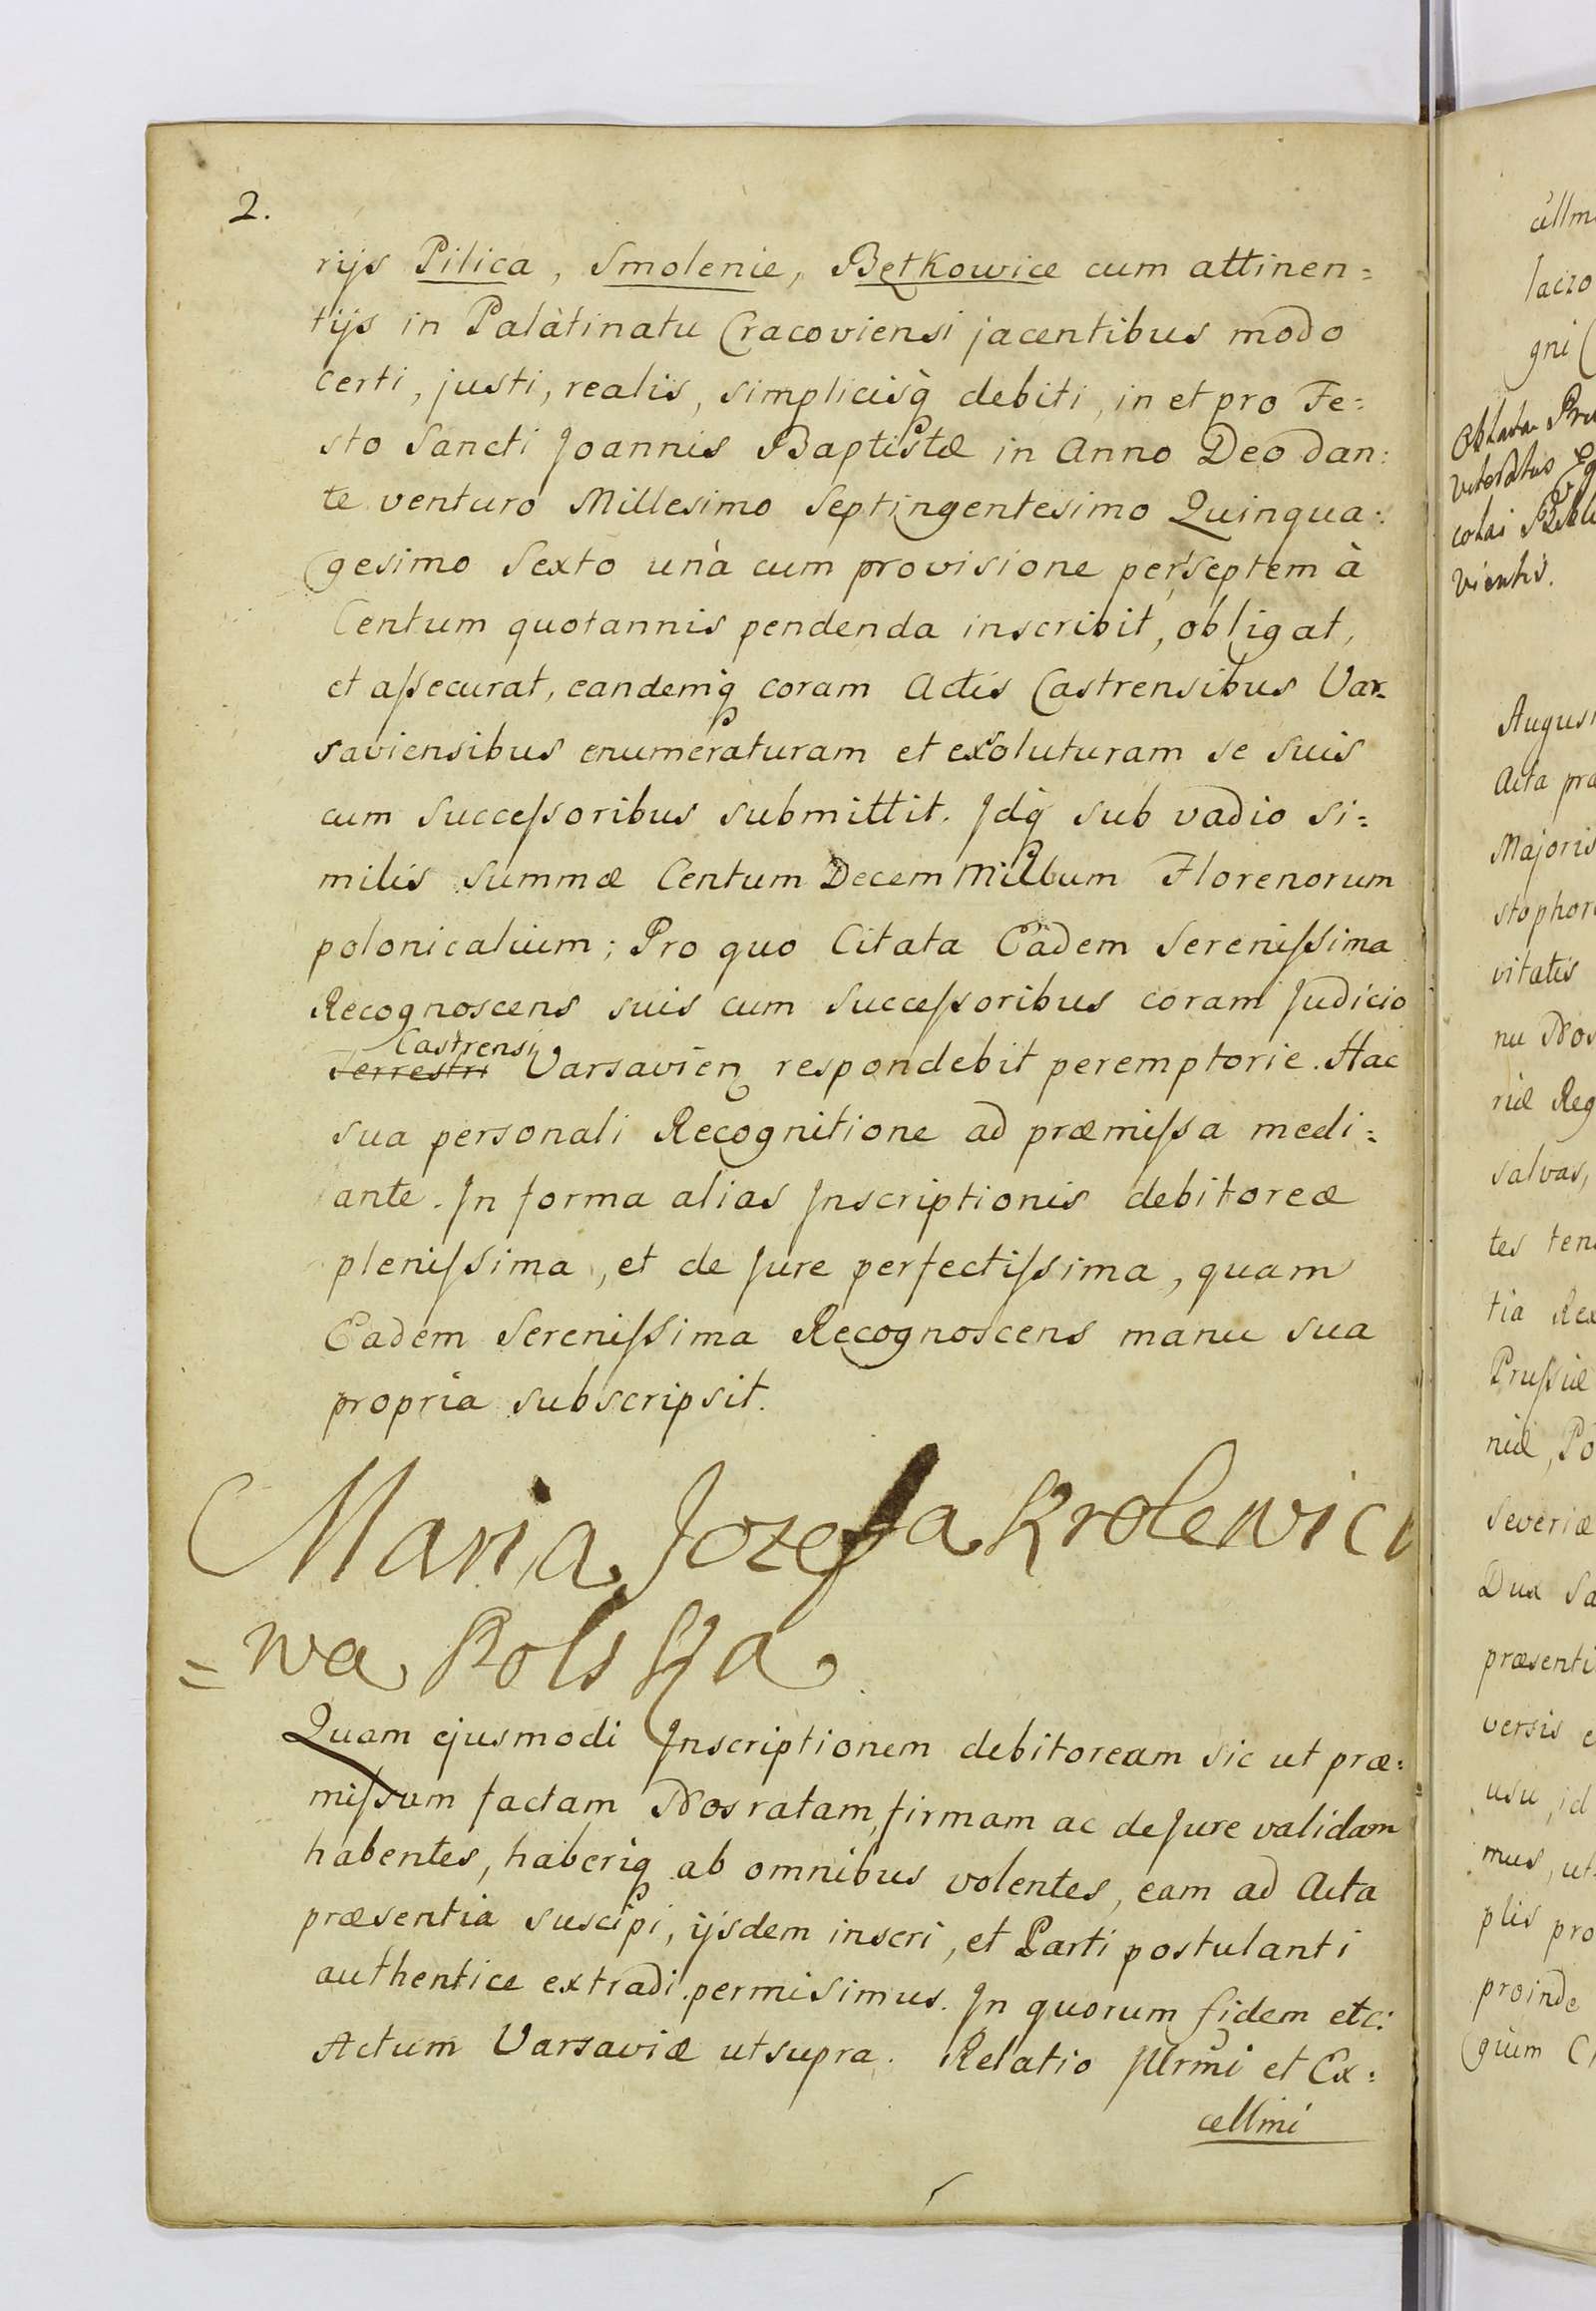 2.
rijs Pilica, Smolenie, Bętkowice cum attinen=
tijs in Palàtinatu Cracoviensi jacentibus modo
certi, justi, realis, simplicisq̀ debiti, in et pro Fe=
sto Sancti Joannis Baptistæ in Anno Deo dan=
te venturo Millesimo Septingentesimo Quinqua=
gesimo Sexto unà cum provisione per septem à
Centum quotannis pendenda inscribit, obligat,
et aſsecurat, eandemq̀ coram Actis Castrensibus Var=
saviensibus enumeraturam et exsoluturam se suis
cum Succeſsoribus submittit. Jdq̀ sub vadio si=
milis summæ Centum Decem Millium Florenorum
polonicalium; Pro quo Citata Eàdem Sereniſsima
Recognoscens suis cum Succeſsoribus coram Judicio
Castrensi
Terrestri Varsavien̄ respondebit peremptorie. Hac
sua personali Recognitione ad præmiſsa medi=
ante. Jn forma alias Jnscriptionis debitoreæ
pleniſsima, et de Jure perfectiſsima, quam
Eadem Sereniſsima Recognoscens manu sua
propria subscripsit.
Maria Jozefa Krolewic
=wa Polska
Quam ejusmodi Jnscriptionem debitoream sic ut præ=
miſsum factam Nos ratam, firmam ac de Jure validam
habentes, haberiq̀ ab omnibus volentes, eam ad Acta
præsentia suscipi, ijsdem inseri, et Parti postulanti
authentice extradi permisimus. Jn quorum fidem etc:
Actum Varsaviæ ut supra. Relatio Jllrm̄i et Ex=
cellm̄i
cellm
laczo
gni
vientis.
Augus
Acta præ
Majoris
stophor
vitatis
nu Nos
riæ Reg
salvas,
tes ten
tia Rex
Pruſsiæ
niæ, Po
Severiæ
Dux Sa
præsenti
versis e
usu, id
mus, ut
plis pro
proinde
gium C